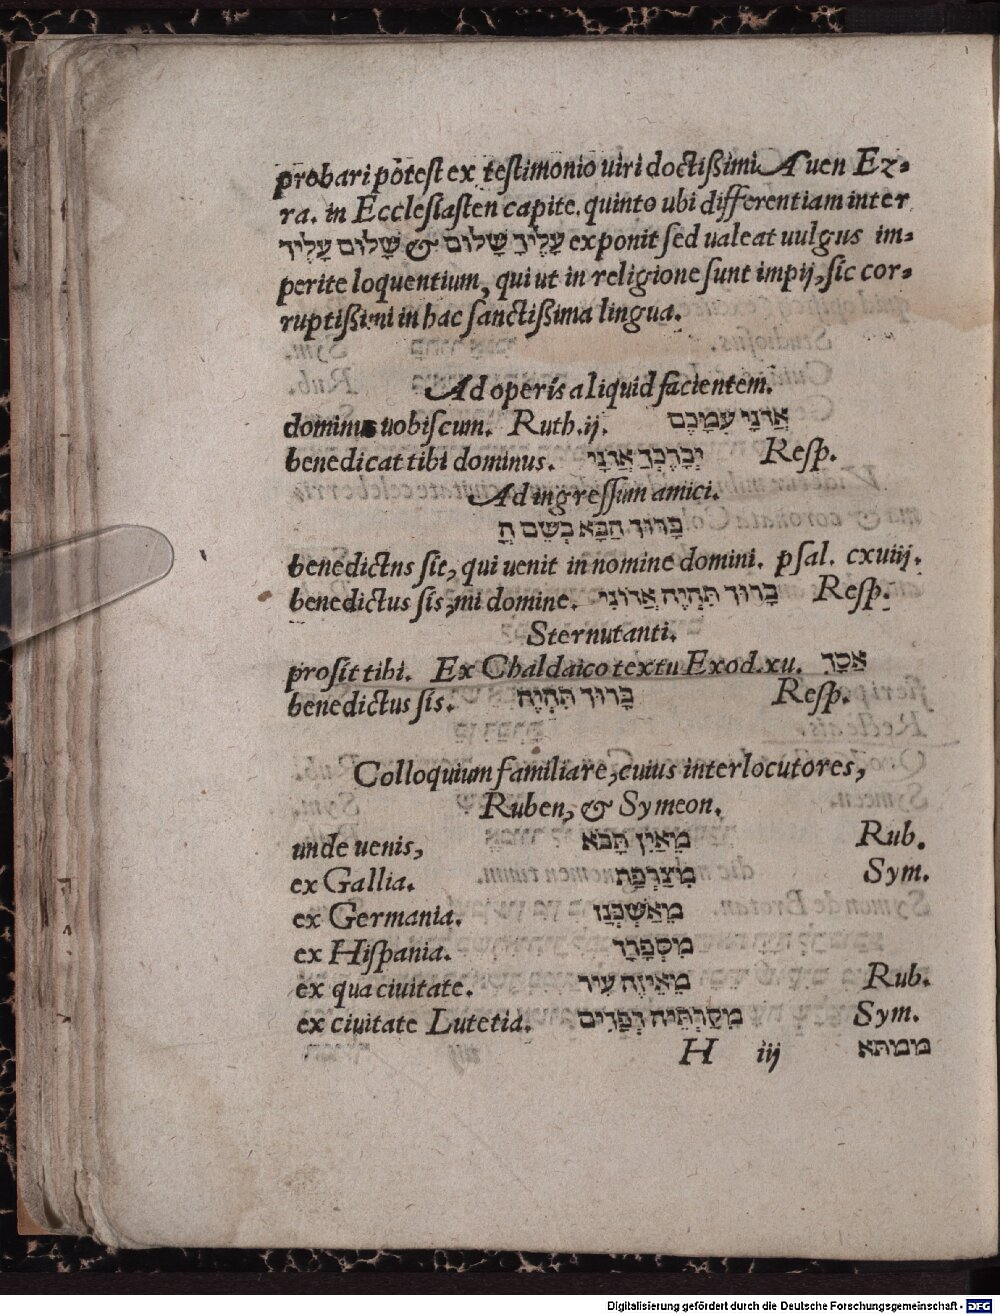 probari potest ex testimonio uiri doctißimi Auen Ez-
ra. in Ecclesiasten capite. quinto ubi differentiam inter
עָלֶיךָ שָׁלוֹם & שָׁלוֹם עָלֶיךָ exponit sed ualeat uulgus im-
perite loquentium, qui ut in religione sunt impij, sic cor-
ruptißimi in hac sanctißima lingua.
Ad operis aliquid facientem.
dominus uobiscum. Ruth.ij. אֲדֹנָי עִמָּכֶם
benedicat tibi dominus. יְבָרֶכְךָ אֲדֹנָי Resp.
Ad ingressum amici.
בָּרוּךְ הַבָּא בְּשֵׁם הָ
benedictns sit, qui uenit in nomine domini. psal. cxuiij.
benedictus sis, mi domine. בָּרוּךְ תִּהְיֶה אֲדוֹנִי Resp.
Sternutanti.
prosit tibi. Ex Chaldaico textu Exod.xu. אַסָּךְ
benedictus sis. בָּרוּךְ תִּהְיֶה Resp.
Colloquium familiare, cuius interlocutores,
Ruben, & Symeon.
unde uenis, מֵאַיִן תָּבֹא Rub.
ex Gallia. מִצָּרְפַת Sym.
ex Germania. מֵאַשְׁכְּנַז
ex Hispania. מִסְפָרַד
ex qua ciuitate. מֵאֵיזֶה עִיר Rub.
ex ciuitate Lutetia. מִקַרְתֵּיהּ דְפַרִים Sym.
H iij ממתא
Digitalisierung gefördert durch die Deutsche Forschungsgemeinschaft - DFG